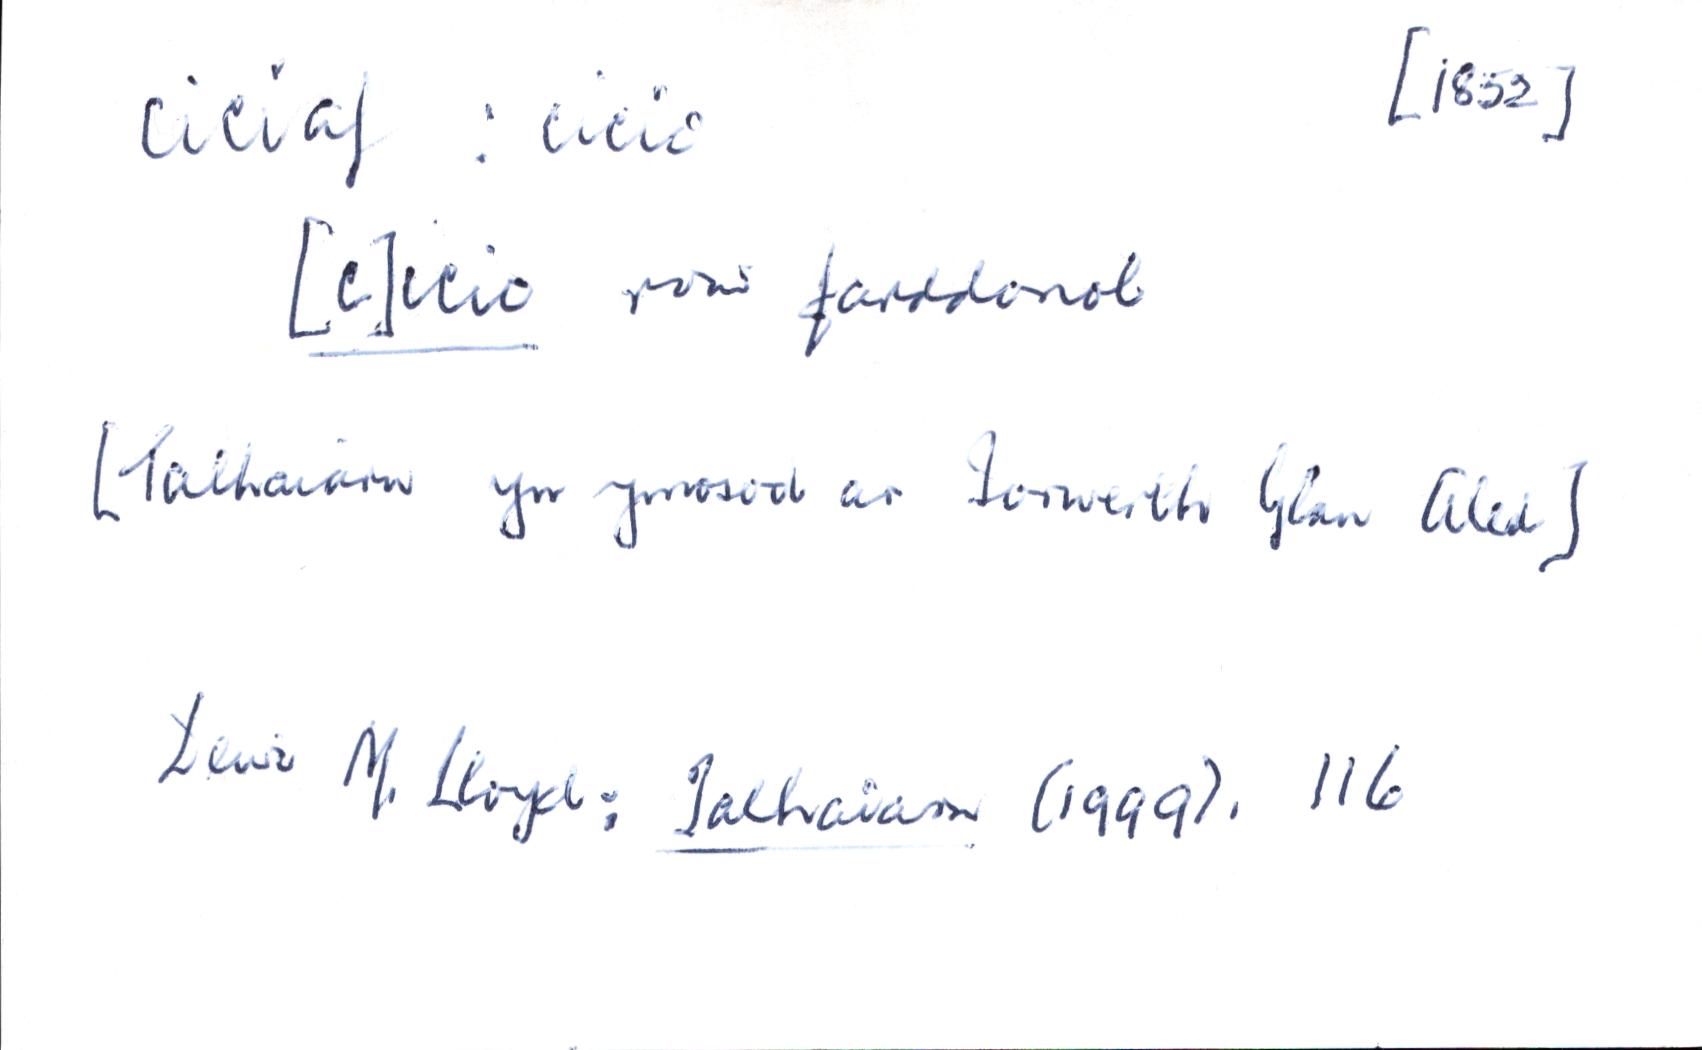 ciciaf : cicio [1852]
[c]icio rôni farddonol
[Talhaiarn yn ymosod ar Iorwerth Glan Aled]
Dewi M. Lloyd: Talhaiarn (1999), 116